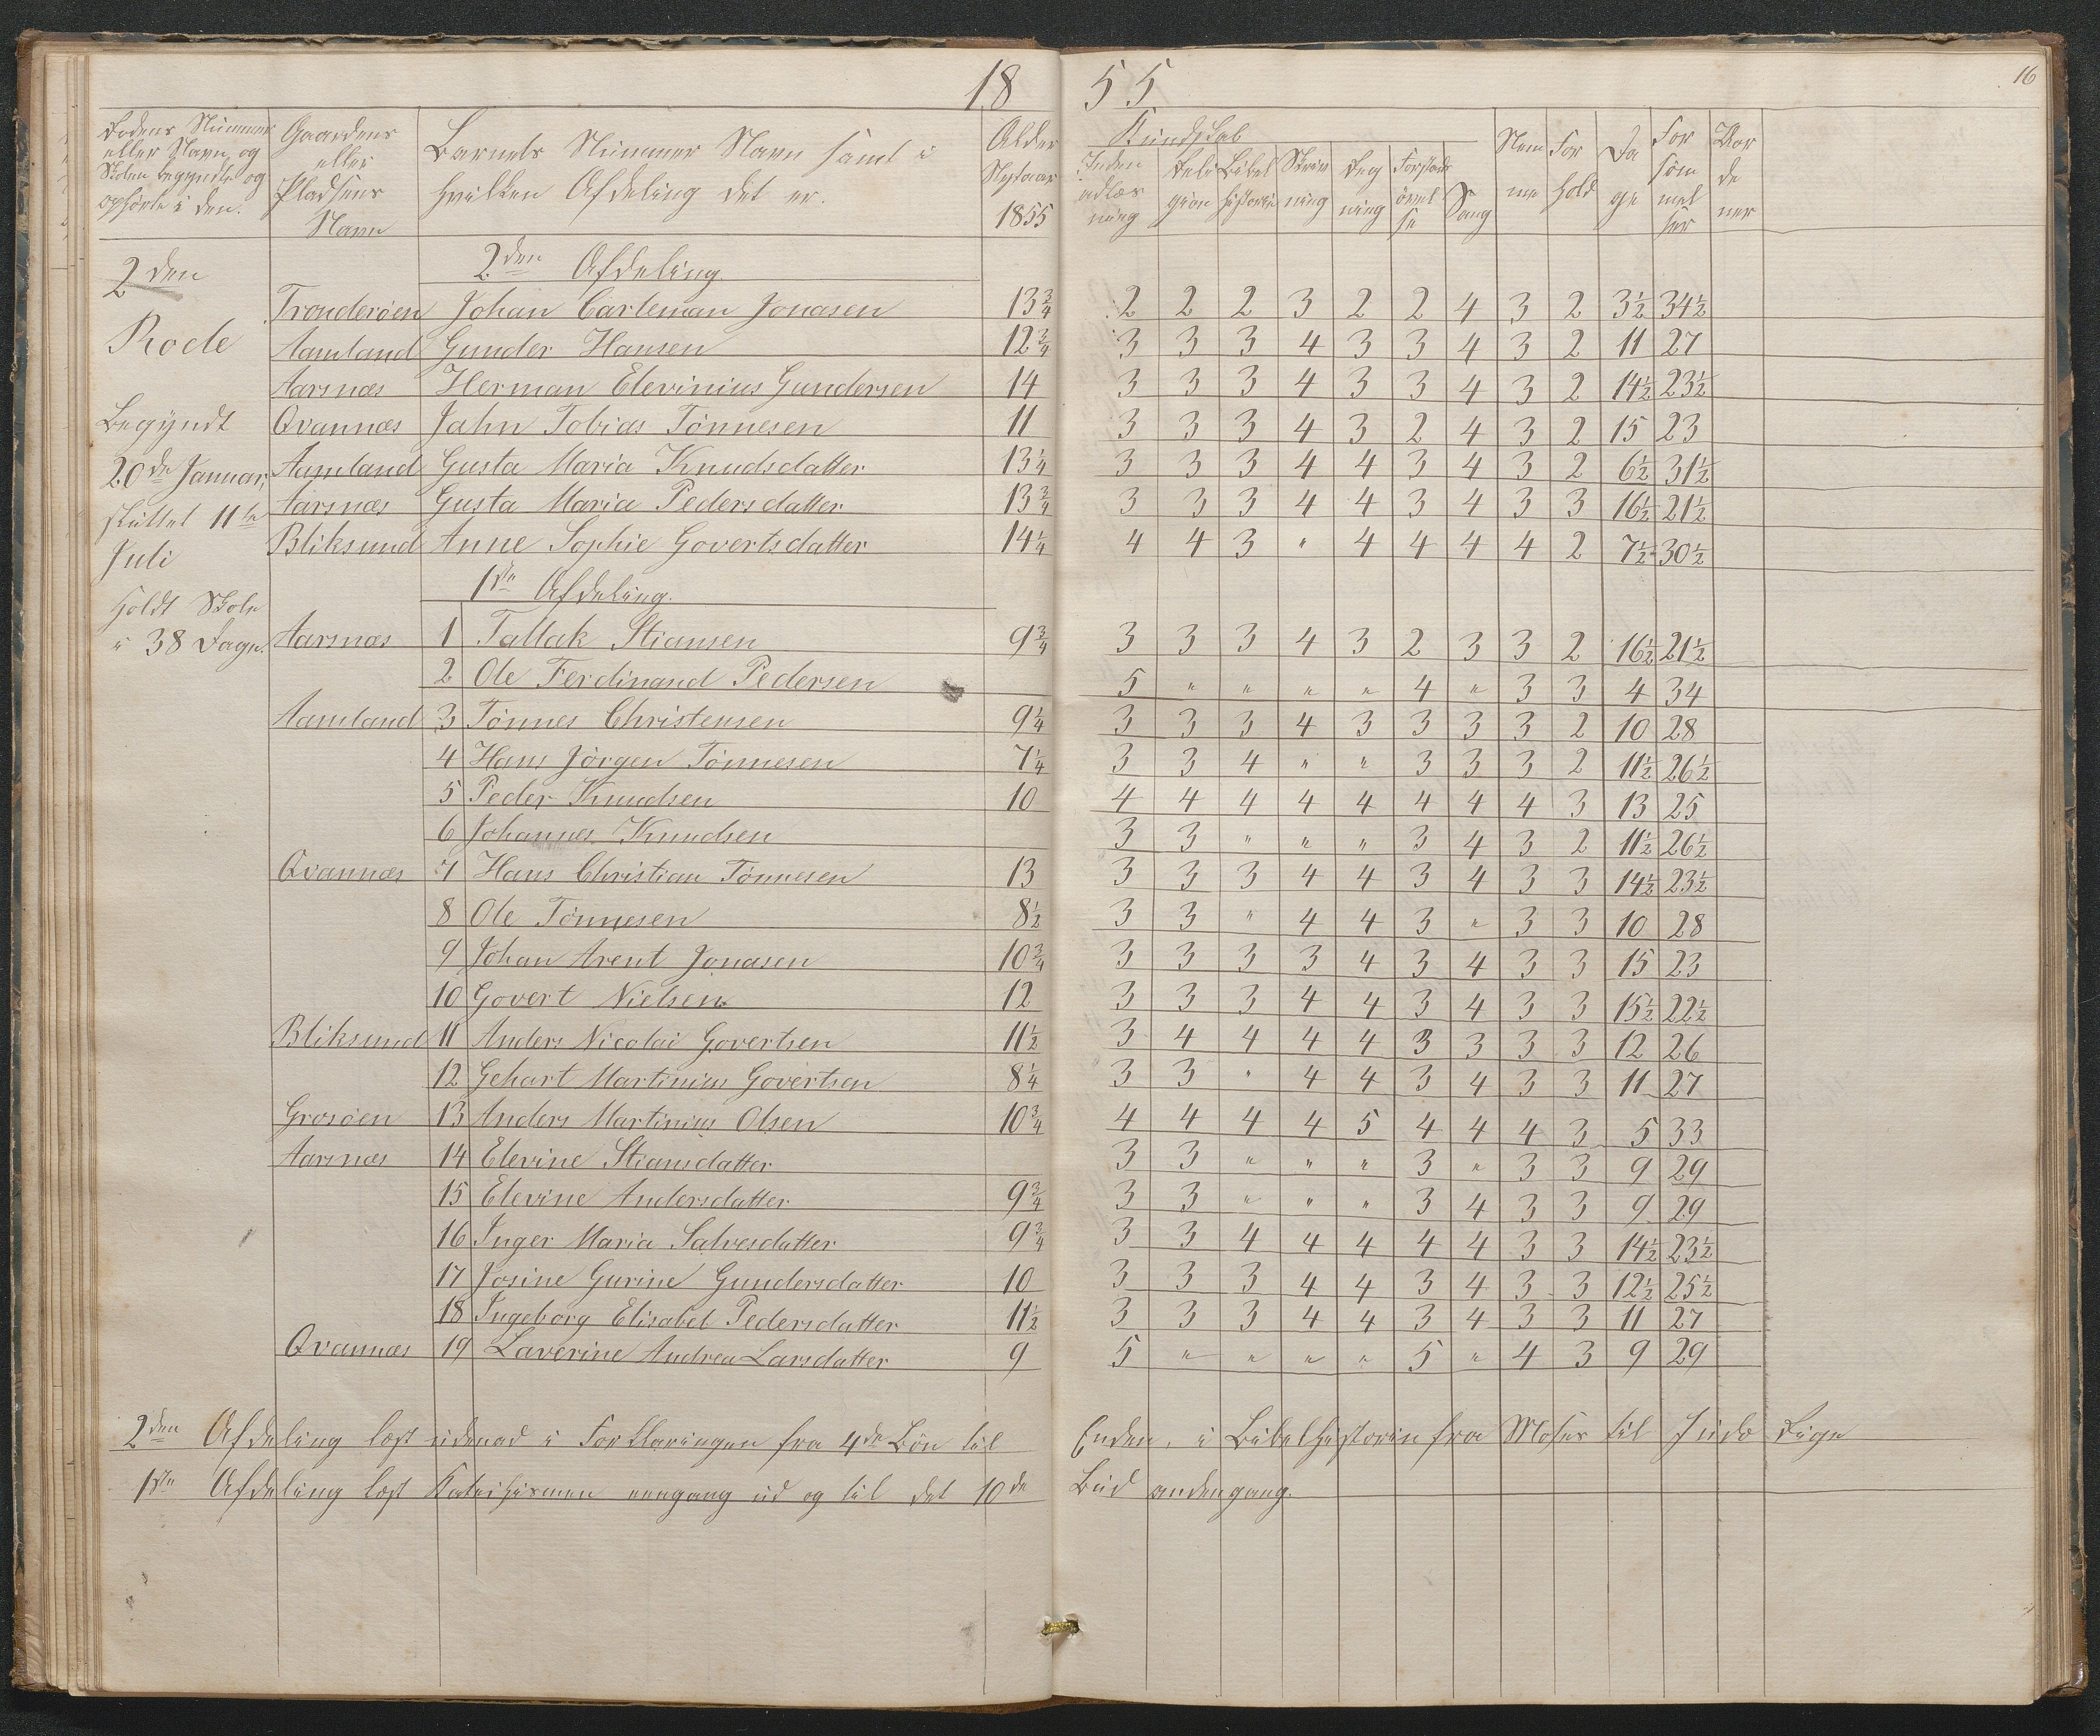 18 55
16
Rodens Nummer eller Navn og Skolen begyndte og ophörte i den.
Gaardens eller Pladsens Navn
Barnets Nummer Navn samt i hvilken Afdeling det er.
Alder Nytaar 1855
Kundskab
Inden adlæs ning
Reli gion
Bibel historie
Skriv ning
Reg ning
Forstands övel se
Sang
Nem me
For hold
Da ge
For söm mel ser
Vor de ner
2den Rode
Begyndt
20de Januar,
sluttet 11te
Juli
Holdt Skole
i 38 Dage.
2den Afdeling.
Tronderöen Johan Carleman Jonasen 13 3/4 2 2 2 3 2 2 4 3 2 3 1/2 34 1/2
Aamland Gunder Hansen 12 3/4 3 3 3 4 3 3 4 3 2 11 27
Aarsnæs Herman Elevinius Gundersen 14 3 3 3 4 3 3 4 3 2 14 1/2 23 1/2
Qvannæs Jahn Tobias Tönnesen 11 3 3 3 4 3 2 4 3 2 15 23
Aamland Gusta Maria Knudsdatter 13 1/4 3 3 3 4 4 3 4 3 2 6 1/2 31 1/2
Aarsnæs Gusta Maria Pedersdatter 13 3/4 3 3 3 4 4 3 4 3 3 16 1/2 21 1/2
Bliksund Anne Sophie Govertsdatter 14 1/4 4 4 3 " 4 4 4 4 2 7 1/2 30 1/2
1ste Afdeling.
Aarsnæs 1 Tallak Stiansen 9 3/4 3 3 3 4 3 2 3 3 2 16 1/2 21 1/2
2 Ole Ferdinand Pedersen 5 " " " " 4 " 3 3 4 34
Aamland 3 Tönnes Christensen 9 1/4 3 3 3 4 3 3 3 3 2 10 28
4 Hans Jörgen Tönnesen 7 1/4 3 3 4 " " 3 3 3 2 11 1/2 26 1/2
5 Peder Knudsen 10 4 4 4 4 4 4 4 4 3 13 25
6 Johannes Knudsen 3 3 " " " 3 4 3 2 11 1/2 26 1/2
Qvannæs 7 Hans Christian Tönnesen 13 3 3 3 4 4 3 4 3 3 14 1/2 23 1/2
8 Ole Tönnesen 8 1/2 3 3 " 4 4 3 " 3 3 10 28
9 Johan Arent Jonasen 10 3/4 3 3 3 3 4 3 4 3 3 15 23
10 Govert Nielsen 12 3 3 3 4 4 3 4 3 3 15 1/2 22 1/2
Bliksund 11 Anders Nicolai Govertsen 11 1/2 3 4 4 4 4 3 3 3 3 12 26
12 Gehart Martinius Govertsen 8 1/4 3 3 " 4 4 3 4 3 3 11 27
Grosöen 13 Anders Martinius Olsen 10 3/4 4 4 4 4 5 4 4 4 3 5 33
Aarsnæs 14 Elevine Stiansdatter 3 3 " " " 3 " 3 3 9 29
15 Elevine Andersdatter 9 3/4 3 3 " " " 3 4 3 3 9 29
16 Inger Maria Salvesdatter 9 3/4 3 3 4 4 4 4 4 3 3 14 1/2 23 1/2
17 Josine Gurine Gundersdatter 10 3 3 3 4 4 3 4 3 3 12 1/2 25 1/2
18 Ingeborg Elisabet Pedersdatter 11 1/2 3 3 3 4 4 3 4 3 3 11 27
Qvannæs 19 Laverine Andrea Larsdatter 9 5 " " " " 5 " 4 3 9 29
2den Afdeling læst udenad i Forklaringen fra 4de Bön til Enden, i Bibelhistorien fra Moses til Juda Rige
1ste Afdeling læst Katechismen engang ud og til det 10de Bud andengang.